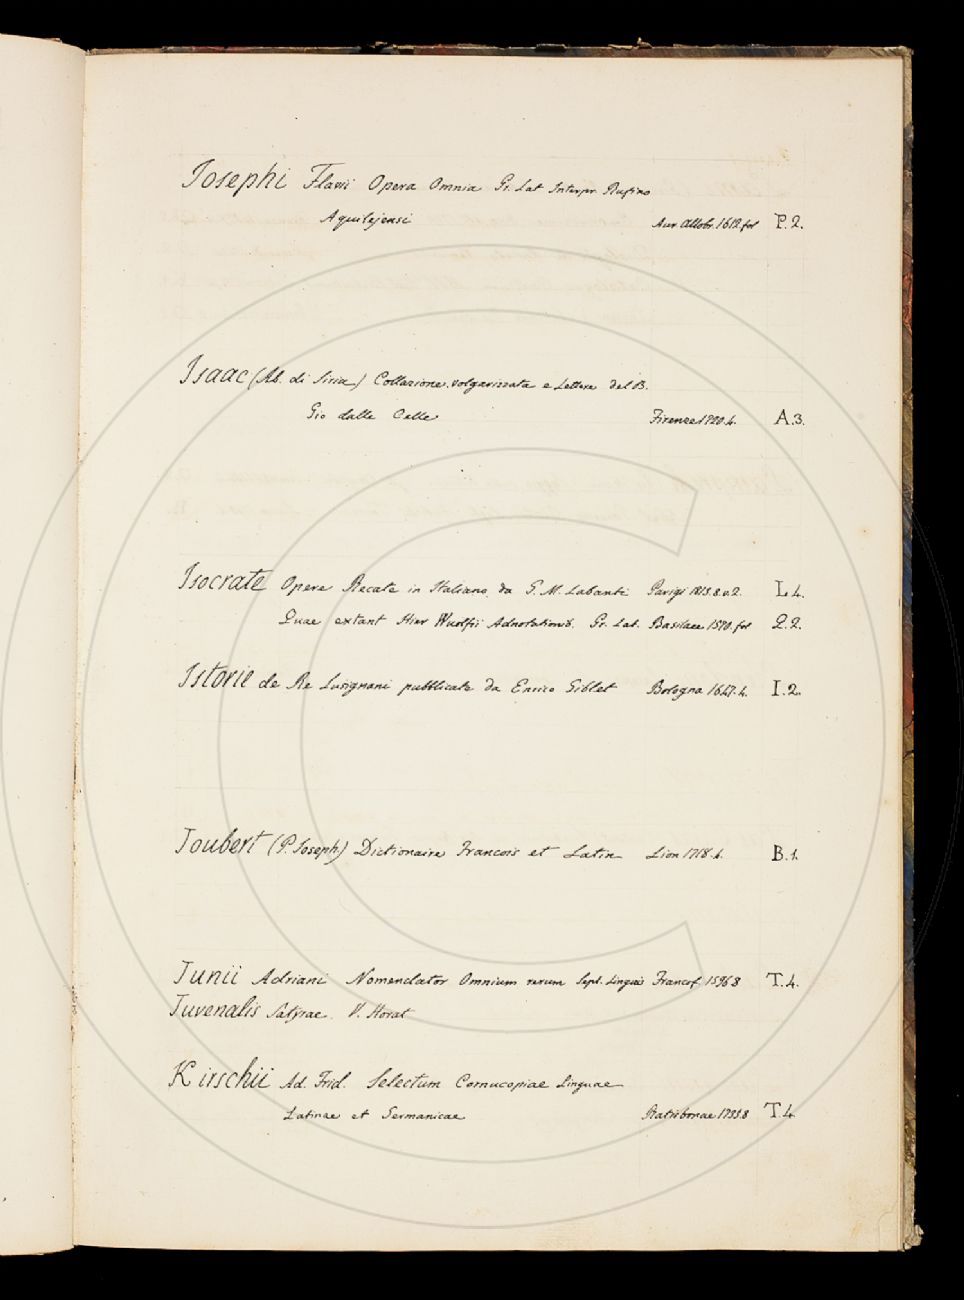 Josephi Flavii Opera Omnia Gr. Lat Interpr. Rufino
Aquilejensi Aur. Allobr. 1612. fol P. 2.
Isaac (Ab. di Siria) Collazione volgarizzata e Lettere del B.
Gio dalle Celle Firenze 1720. 4. A. 3.
Isocrate Opere Recate in Italiano da G. M. Labanti Parigi 1813. 8. v. 2. L. 4.
Quae extant Hier Wuolfii Adnotationib. Gr. Lat. Basileae 1570. fol Q. 2.
Istorie de Re Lusignani pubblicate da Enrico Giblet Bologna 1647. 4. I. 2.
Joubert (P. Joseph) Dictionaire Francois et Latin Lion 1718. 4. B. 1.
Junii Adriani Nomenclator Omnium rerum Sept. Linguis Francof. 1596 8 T. 4.
Juvenalis Satyrae. V. Horat
Kirschii Ad. Frid. Selectum Cornucopiae Linguae
Latinae et Germanicae Ratisbonae 1735. 8 T. 4.